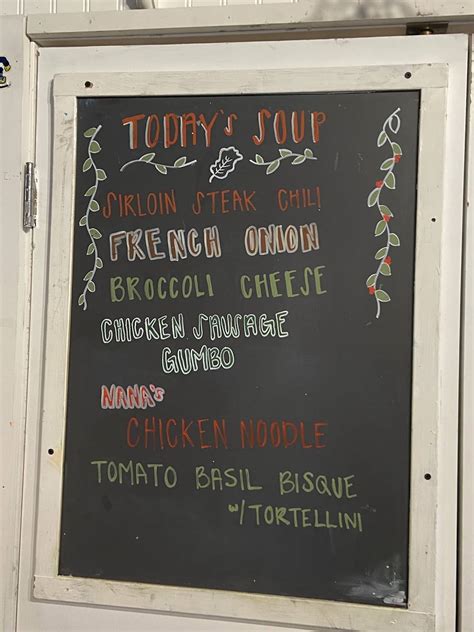 TODAY'S SOUP
SIRLOIN STEAK CHILI
FRENCH ONION
BROCCOLI CHEESE
CHICKEN SAUSAGE
GUMBO
NANA'S
CHICKEN NOODLE
TOMATO BASIL BISQUE
w/TORTELLINI